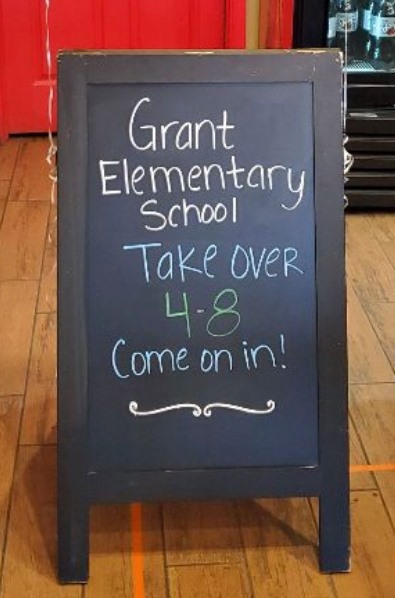 Grant
Elementary
School
Take over
4-8
Come on in!